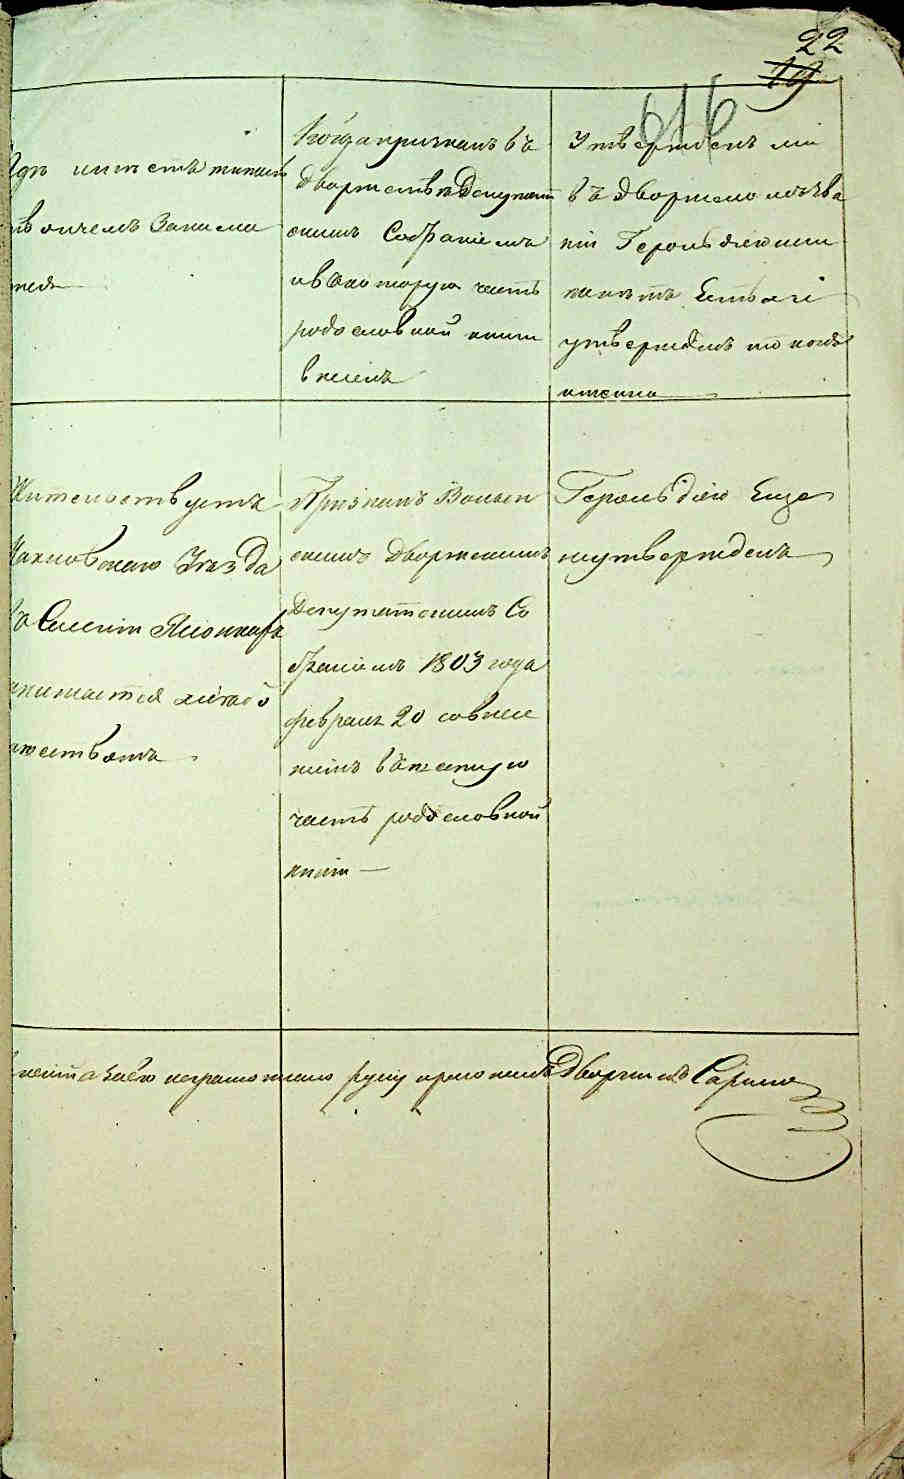 22
19
616
Где имеетъ жител
ство и чемъ занима
ется
Когда признанъ въ
дворянствѣ Депутат
скимъ Собраніемъ
и въ которую часть
родословной книги
внесенъ
Утвержденъ ли
въ дворянскомъ зва
ніи Герольдіею или
нѣтъ Если
утвержденъ то когда
имянно
Жительствуетъ
Махновскаго Уезда
въ Селеніи
занимается хлѣбо
пашествомъ
Признанъ Волын
скимъ Дворянскимъ
Депутатскимъ Со
браніемъ 1803 года
февраля 20 со внесе
ніемъ въ первую
часть родословной
книги
Герольдіею Еще
неутвержденъ
неграмотнаго руку приложилъ Дворянинъ